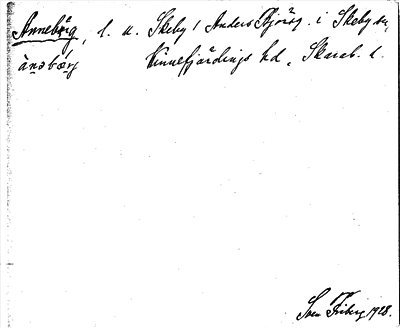 Annebärg, l. u. Skeby 1 Anders Bjurs g. i Skeby sn,
ànəbǽrj Kinnefjärdings hd, Skarab. l.
Sven Friberg 1928.